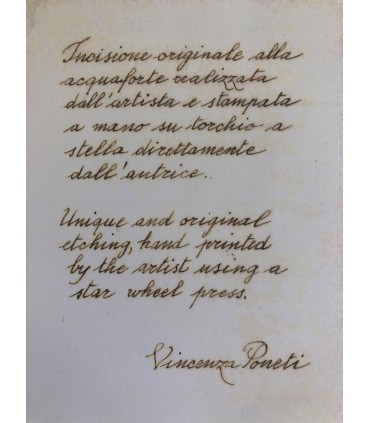 Incisione originale alla
acquaforte realizzata
dall'artista e stampata
a mano su torchio a
stella direttamente
dall'autrice.
Unique and original
etching, hand printed
by the artist using a
star wheel press.
Vincenza Poneti